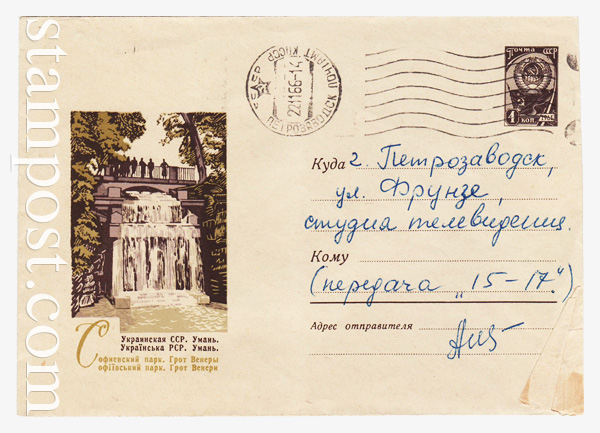 stampost.com
ПЕТРОЗАВОДСК ПОЧТАМТ
221166-14
ПОЧТА СССР
4 КОП.
Куда г. Петрозаводск,
ул. Фрунзе,
студия телевидения.
Кому
(передача „15-17“)
Адрес отправителя
Украинская ССР. Умань.
Українська РСР. Умань.
Софиевский парк. Грот Венеры
офіївський парк. Грот Венери